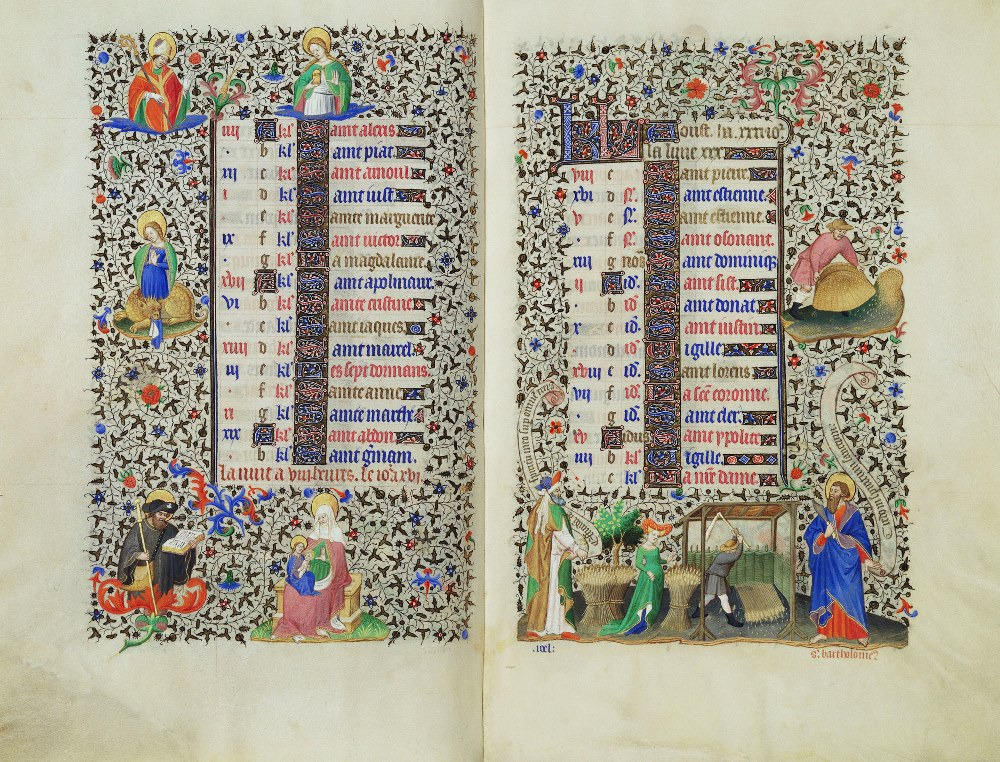 iiii A kl' aint alexis.
b kl' aint piat.
xii c kl' aint arnoul.
i d kl' aint iust.
e kl' ainte marguerite
ix f kl' aint uictor.
g kl' a magdalaine.
xvii A kl' aint apolinaire.
vi b kl' ainte cristine.
c kl' aint iaques.
xiiii d kl' aint marcel.
iii e kl' es sept dormans.
f kl' ainte anne.
xi g kl' ainte marthe.
xix A kl' aint abdon.
b kl' aint gm̄ain.
la nuit a viii heures. le iour xvi.
KL Aoust. a. xxxi io'
la lune xxx.
viii c aint pierre.
xvi d N'. aint estienne.
v e N'. aint estienne.
f N'. aint osouaint.
xiii g nōs aint dominiq̄
ii A id'. aint sixt.
b id'. aint donat.
x c id'. aint iustin.
d id'. igille.
xviii e id'. aint lorens.
vii f id'. a sc̄e coronne.
g id'. aint cler.
xv A idus aint ypolite.
iiii b kl' igille.
c kl' a nr̄e dame.
.ioel:
S. bartholome?